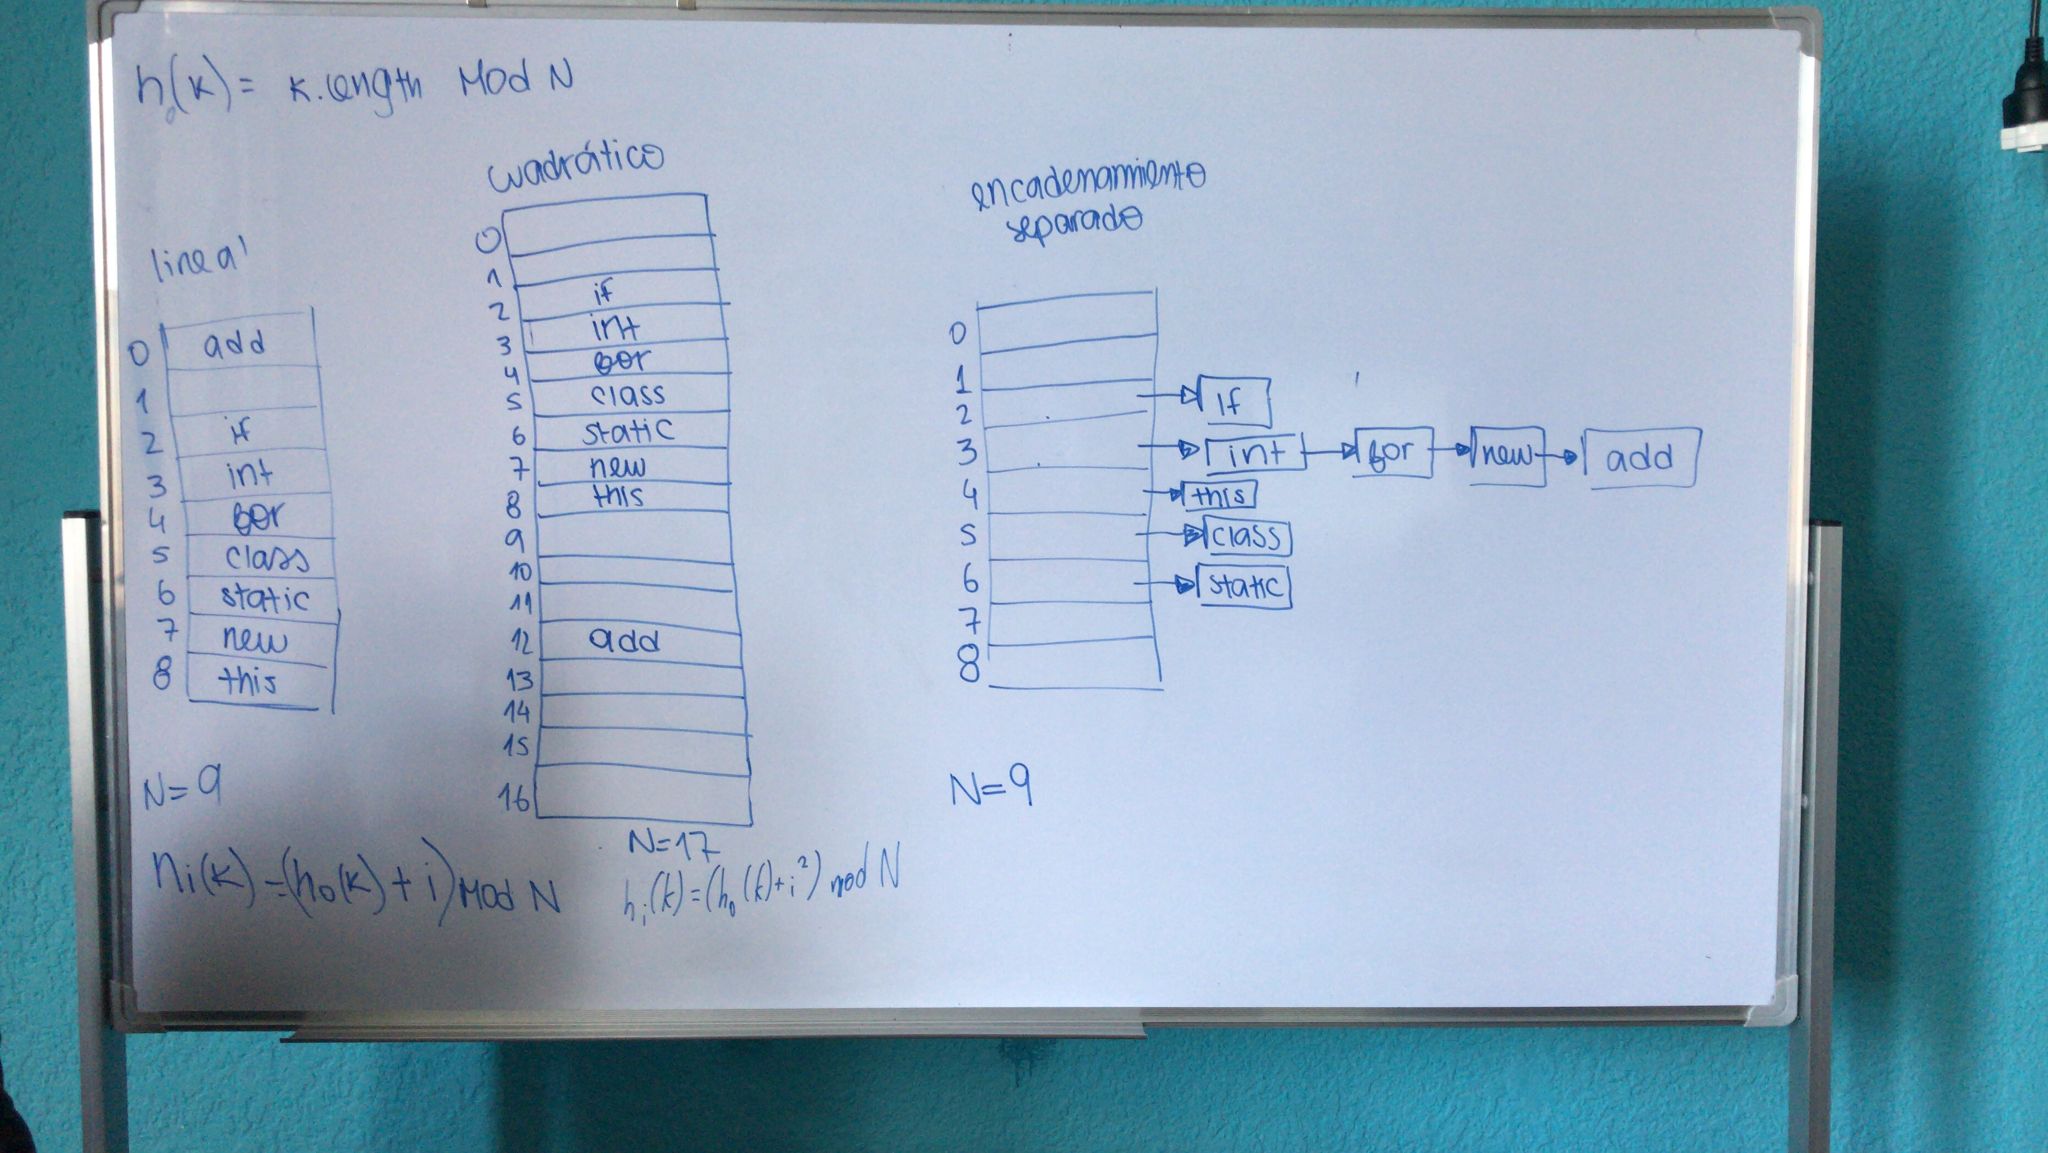 h₀(k)= k.length Mod N
lineal
0 add
1
2 if
3 int
4 for
5 class
6 static
7 new
8 this
N=9
hi(k)=(h₀(k)+i) Mod N
cuadrático
0
1
2 if
3 int
4 for
5 class
6 static
7 new
8 this
9
10
11
12 add
13
14
15
16
N=17
hi(k)=(h₀(k)+i²) mod N
encadenamiento
separado
0
1
2 if
3 int for new add
4 this
5 class
6 static
7
8
N=9